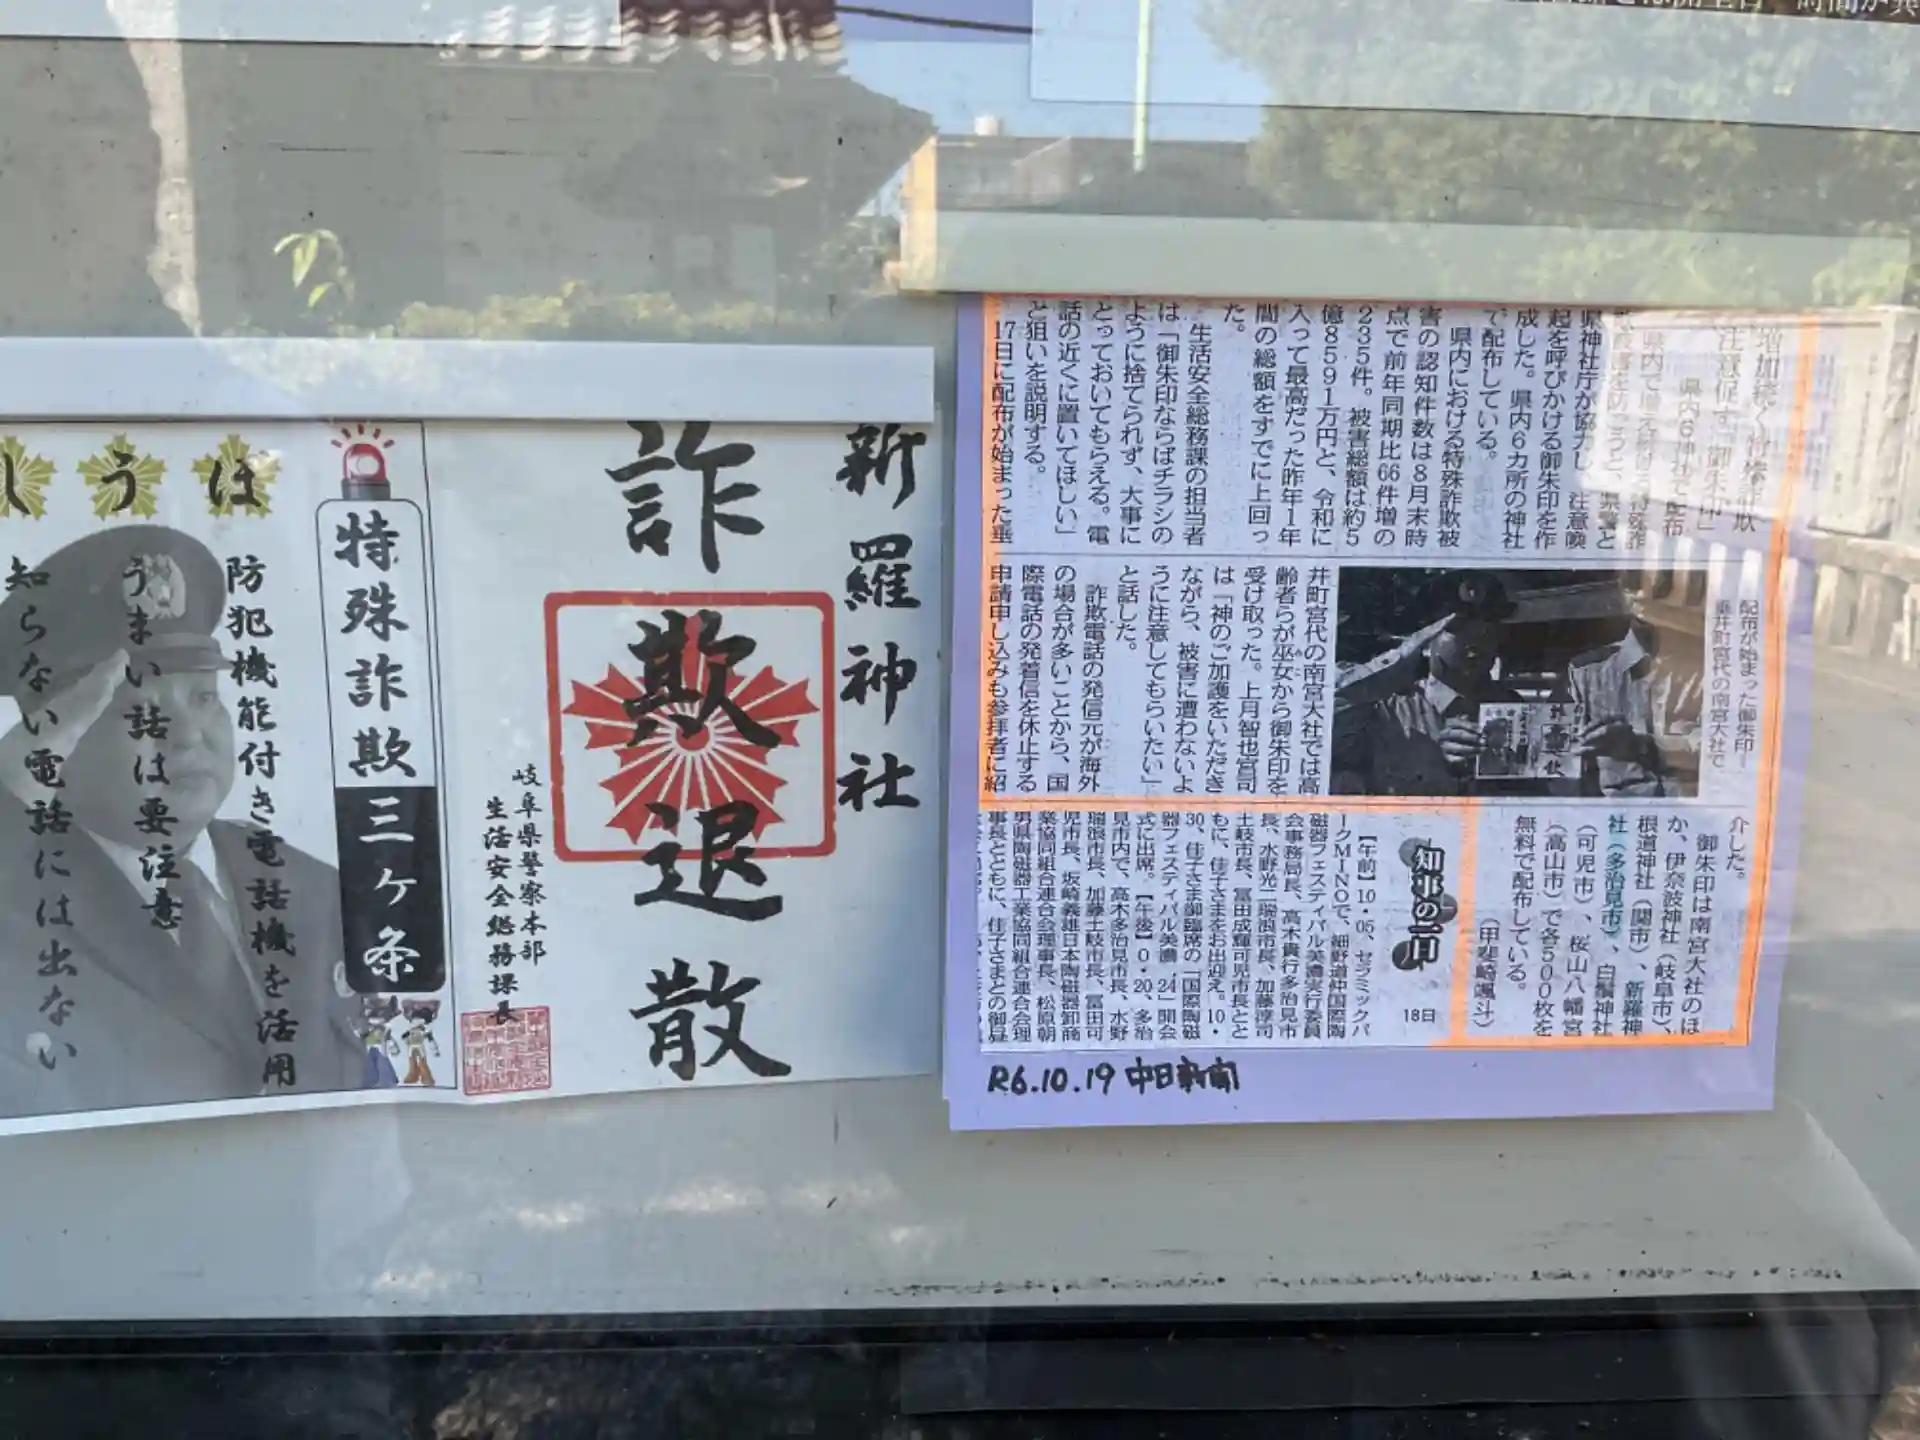 新羅神社
詐欺退散
岐阜県警察本部
生活安全総務課長
特殊詐欺
三ヶ条
ほ
う
し
防犯機能付き電話機を活用
うまい話は要注意
知らない電話には出ない
増加続く特殊詐欺
注意促す「御朱印」
県内6神社で配布
県神社庁が協力し、注意喚
起を呼びかける御朱印を作
成した。県内6カ所の神社
で配布している。
県内における特殊詐欺被
害の認知件数は8月末時
点で前年同期比66件増の
235件。被害総額は約5
億8591万円と、令和に
入って最高だった昨年1年
間の総額をすでに上回っ
た。
生活安全総務課の担当者
は「御朱印ならばチラシの
ように捨てられず、大事に
とっておいてもらえる。電
話の近くに置いてほしい」
と狙いを説明する。
17日に配布が始まった垂
配布が始まった御朱印＝
垂井町宮代の南宮大社で
井町宮代の南宮大社では高
齢者らが巫女から御朱印を
受け取った。上月智也宮司
は「神のご加護をいただき
ながら、被害に遭わないよ
うに注意してもらいたい」
と話した。
詐欺電話の発信元が海外
の場合が多いことから、国
際電話の発着信を休止する
申請申し込みも参拝者に紹
介した。
御朱印は南宮大社のほ
か、伊奈波神社（岐阜市）、
根道神社（関市）、新羅神
社（多治見市）、白鬚神社
（可児市）、桜山八幡宮
（高山市）で各500枚を
無料で配布している。
（甲斐崎颯斗）
知事の一日
18日
【午前】10・05、セラミックパ
ークMINOで、細野道仲国際陶
磁器フェスティバル美濃実行委員
会事務局長、高木貴行多治見市
長、水野光二瑞浪市長、加藤淳司
土岐市長、冨田成輝可児市長とと
もに、佳子さまをお出迎え。10・
30、佳子さま御臨席の「国際陶磁
器フェスティバル美濃'24」開会
式に出席。【午後】0・20、多治
見市内で、高木多治見市長、水野
瑞浪市長、加藤土岐市長、冨田可
児市長、坂崎義雄日本陶磁器卸商
業協同組合連合会理事長、松原朝
男県陶磁器工業協同組合連合会理
事長とともに、佳子さまとの御昼
R6.10.19 中日新聞